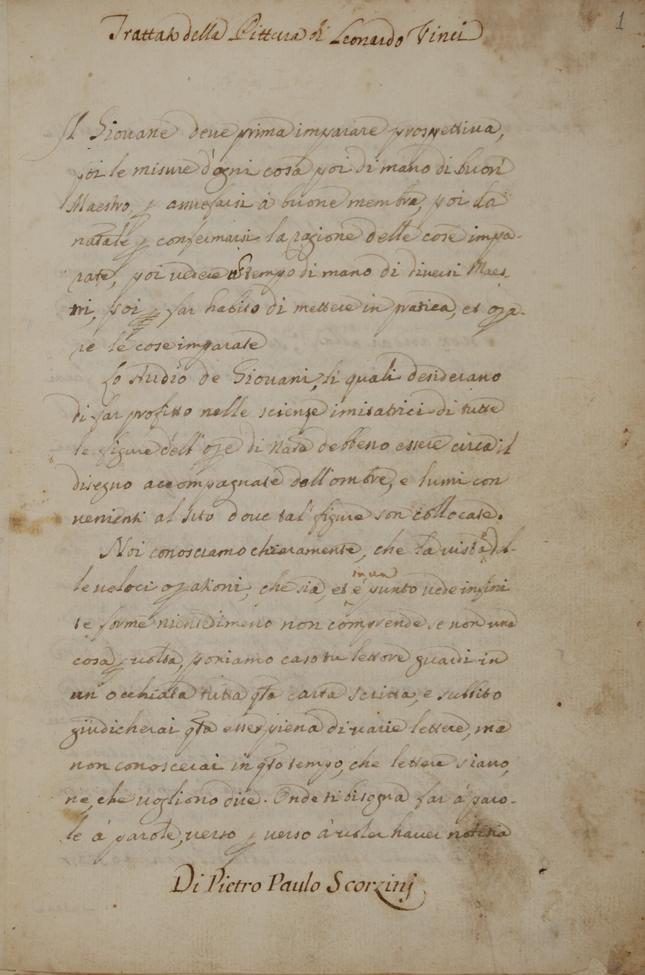 1
Trattato della Pittura di Leonardo Vinci
Il Giovane deve prima imparare prospettiva,
poi le misure d'ogni cosa poi di mano di buon
Maestro, p assuefarsi à buone membra, poi da
natale p confermarsi la ragione delle cose impa-
rate, poi vedere tempo di mano di diversi Maes-
tri, poi p far habito di mettere in pratica, et ope-
re le cose imparate
Lo studio de Giovani, li quali desiderano
di far profitto nelle scienze imitatrici di tutte
le figure dell'ope di Nata debbeno essere circa il
disegno accompagnate dall'ombre, e lumi con
venienti al sito dove tal figure son collocate.
Noi conosciamo chieramente, che la vista
le veloci opationi, che sia, et è in un punto vede infini
te forme nientedimeno non comprende se non una
cosa p volta, poniamo caso tu lettore guardi in
un occhiata tutta qta carta scritta, e subbito
giudicherai qta esser piena di varie lettere, ma
non conoscerai in qto tempo, che lettere siano,
ne, che vogliono dire. Onde ti bisogna far à paro-
le à parole, verso p verso à voler haver notitia
Di Pietro Paulo Scorzinj